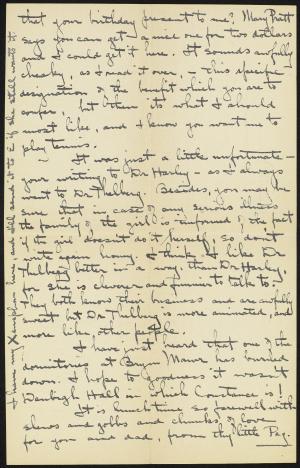 that your birthday present to me? Mary Pratt
says you can get a nice one for two dollars
and I could get it here. It sounds awfully
cheeky, as I read it over, - this specific
designation of the benefit which you are to
confer, but then it's what I should
most like, and I know you want me to
play tennis.
- It was just a little unfortunate -
your writing to Dr Harley - as I always
went to Dr Thelberg. Besides, you may be
sure that in case of any serious illness
the family of the girl is informed of the fact
if the girl doesn't do it herself, so don't
write again honey. I think I like Dr
Thelberg better, in a way, than Dr Harley,
for she is cleverer and funnier to talk to -
They both know their business and are awfully
sweet but Dr Thelberg is more animated, and
more like other people.
I have just heard that one of the
dormitories at Bryn Mawr has burned
down. I hope to goodness it wasn't
Denbigh Hall in which Constance is!
It is lunch time, so farewell with
slews and gobbs and chunks of love
for you and dad, from thy little Peg.
I have my Xenophon here, and will send it to E if she still wants it.